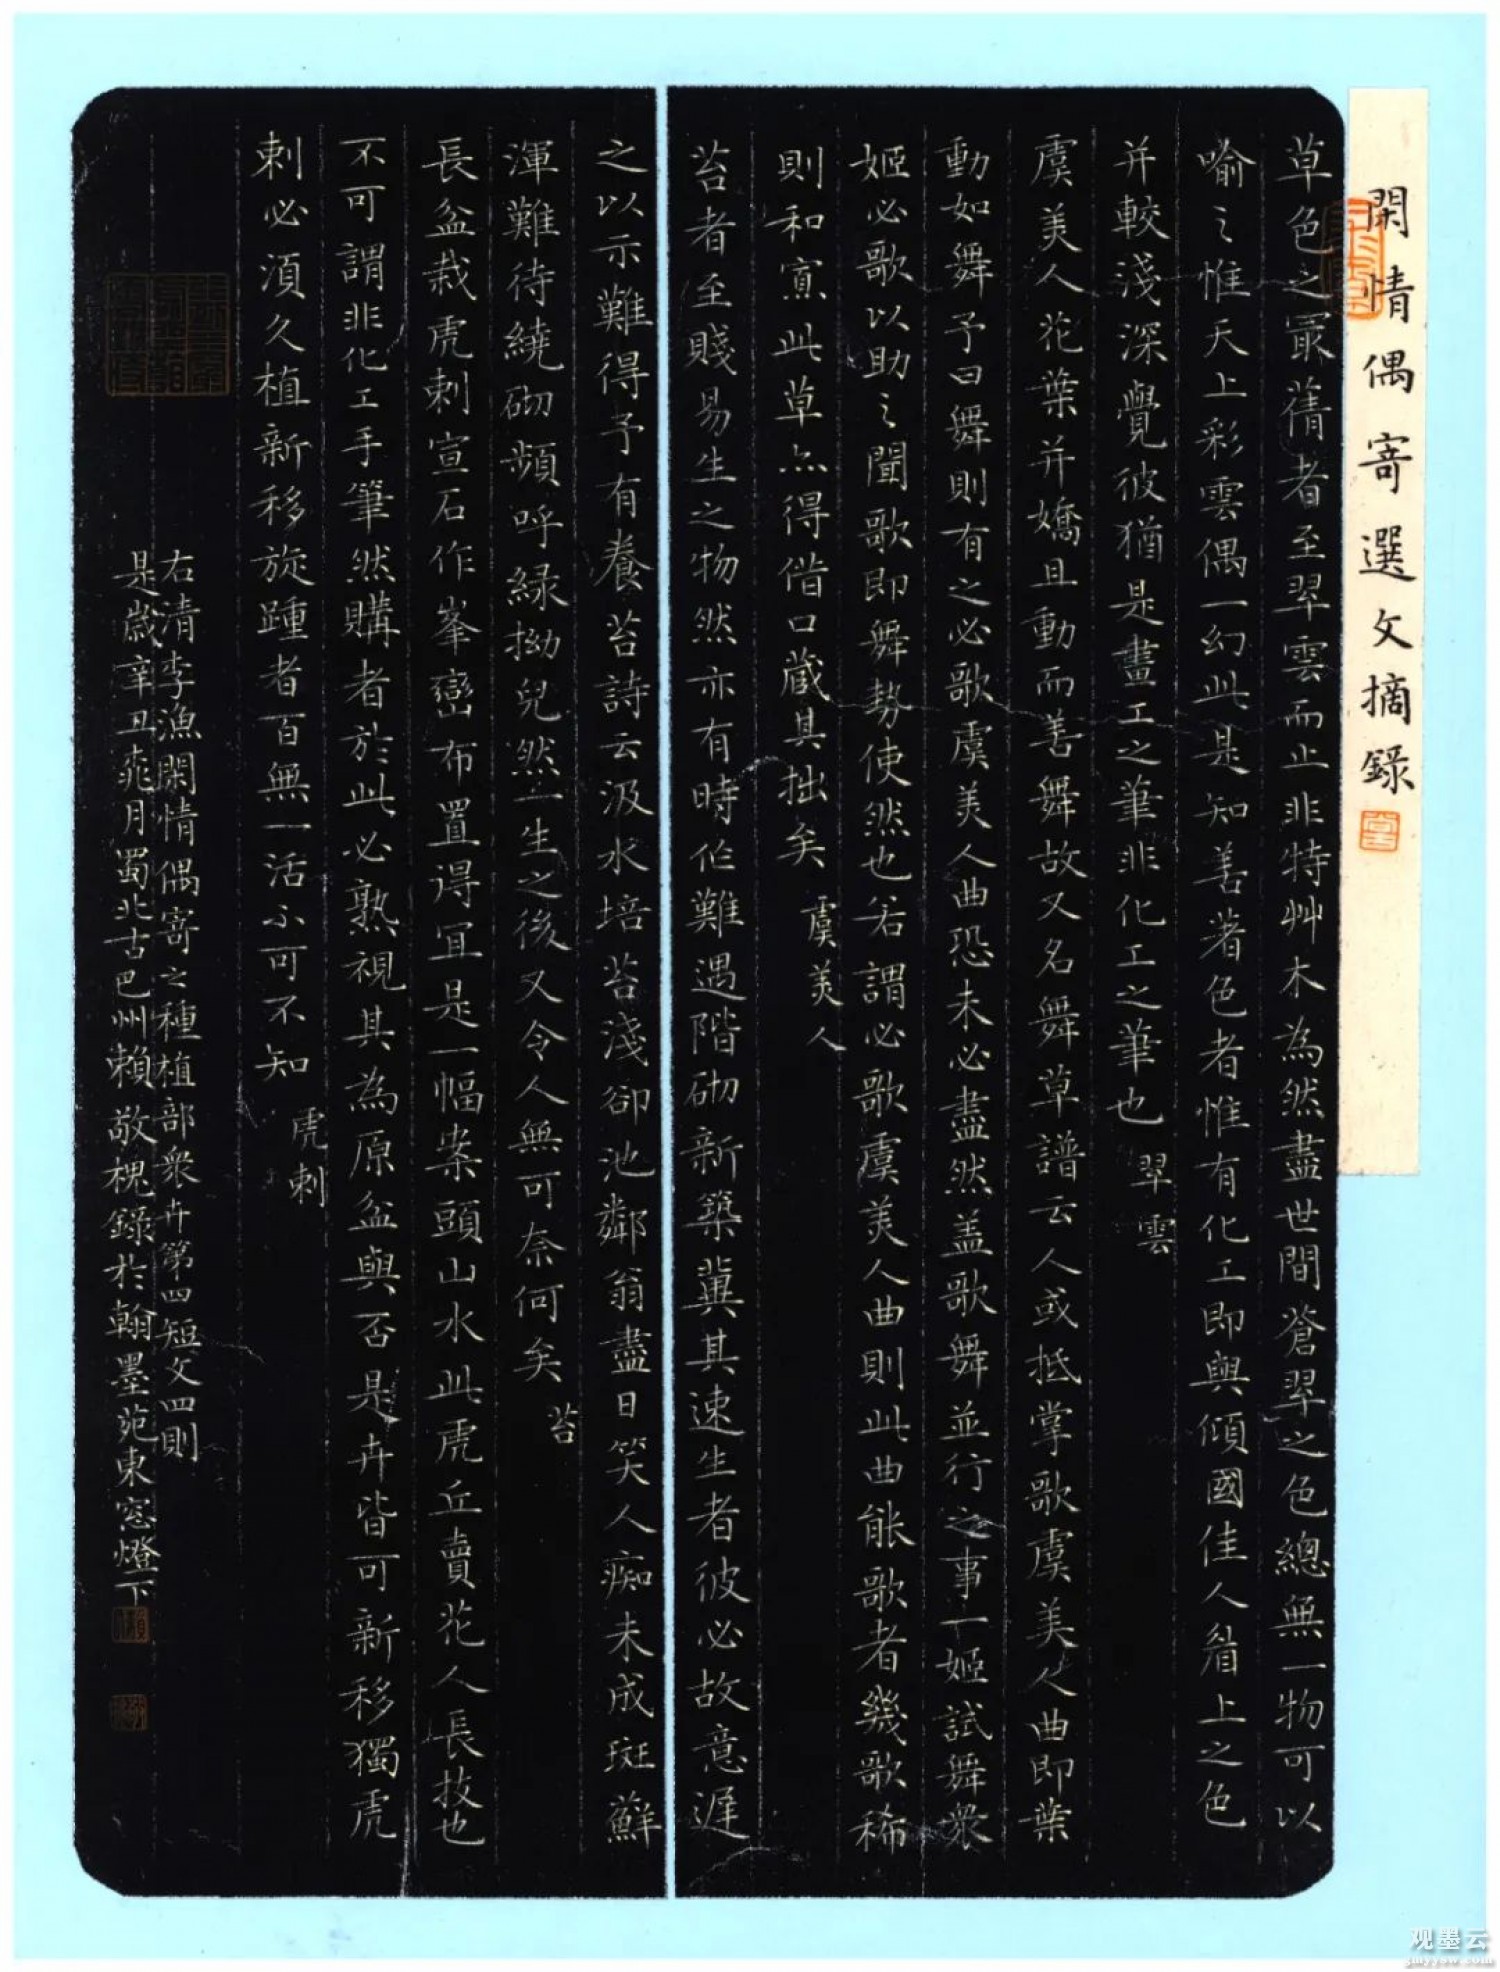 閑情偶寄選文摘錄
草色之最蒨者至翆雲而止非特艸木為然盡世間蒼翆之色總無一物可以
喻之惟天上彩雲偶一幻此是知善著色者惟有化工即與傾國佳人眉上之色
并較淺深覺彼猶是畫工之筆非化工之筆也 翆雲
虞美人花葉并嬌且動而善舞故又名舞草譜云人或抵掌歌虞美人曲即葉
動如舞予曰舞則有之必歌虞美人曲恐未必盡然盖歌舞並行之事一姬試舞衆
姬必歌以助之聞歌即舞勢使然也若謂必歌虞美人曲則此曲能歌者幾歌稀
則和寡此草亦得借口藏其拙矣 虞美人
苔者至賤易生之物然亦有時作難遇階砌新築冀其速生者彼必故意遲
之以示難得予有養苔詩云汲水培苔淺卻池鄰翁盡日笑人痴未成斑蘚
渾難待繞砌頻呼緑拗兒然一生之後又令人無可奈何矣 苔
長盆栽虎刺宣石作峯巒布置得宜是一幅案頭山水此虎丘賣花人長技也
不可謂非化工手筆然購者於此必熟視其為原盆與否是卉皆可新移獨虎
刺必須久植新移旋踵者百無一活不可不知 虎刺
右清李漁閑情偶寄之種植部衆卉第四短文四則
是歲辛丑桃月蜀北古巴州賴敬槐錄於翰墨苑東窓燈下
观墨云
gmyysw.com